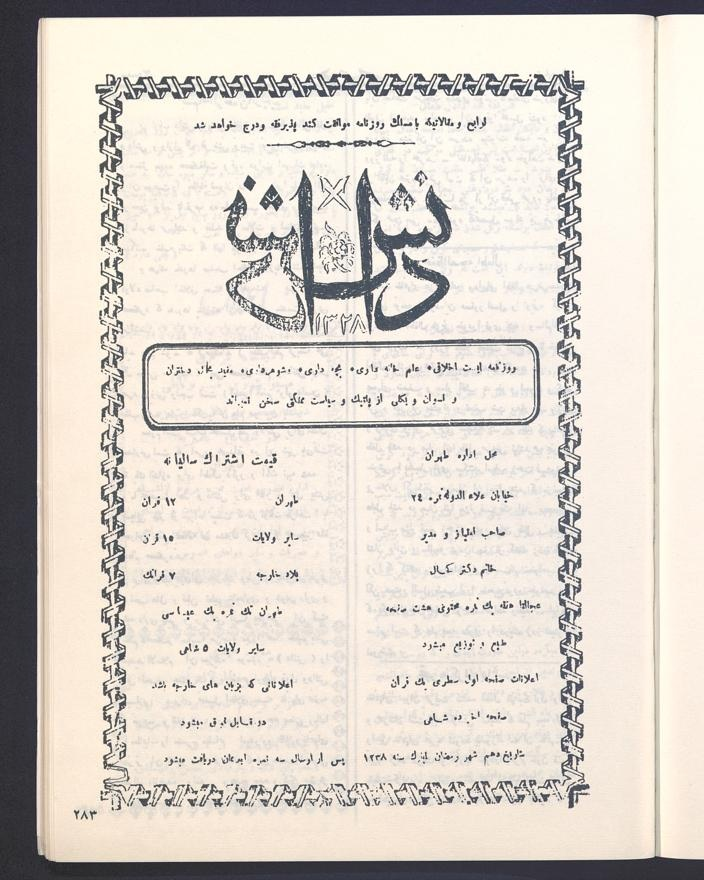 لوایح و مقالاتیکه با مسلک روزنامه موافقت کند پذیرفته و درج خواهد شد
دانش
۱۳۲۸
روزنامه ایست اخلاقی علم خانه داری بچه داری شوهرداری مفید بحال دختران
و نسوان و بکلی از پلتیک و سیاست مملکتی سخن نمیراند
محل اداره طهران
خیابان علاء الدوله نمره ۲٤
صاحب امتیاز و مدیر
خانم دکتر کحال
عجالتا هفته یک نمره محتوی هشت صفحه
طبع و توزیع میشود
اعلانات صفحه اول سطری یک قران
صفحه آخر ده شاهی
بتاریخ دهم شهر رمضان المبارک سنه ۱۳۲۸
قیمت اشتراک سالیانه
طهران ۱۲ قران
سایر ولایات ۱۵ قران
بلاد خارجه ۷ فرانک
طهران تک نمره یک عباسی
سایر ولایات ۵ شاهی
اعلاناتی که بزبان های خارجه باشد
دو مقابل فوق میشود
پس از ارسال سه نمره آبونمان دریافت میشود
۲۸۳